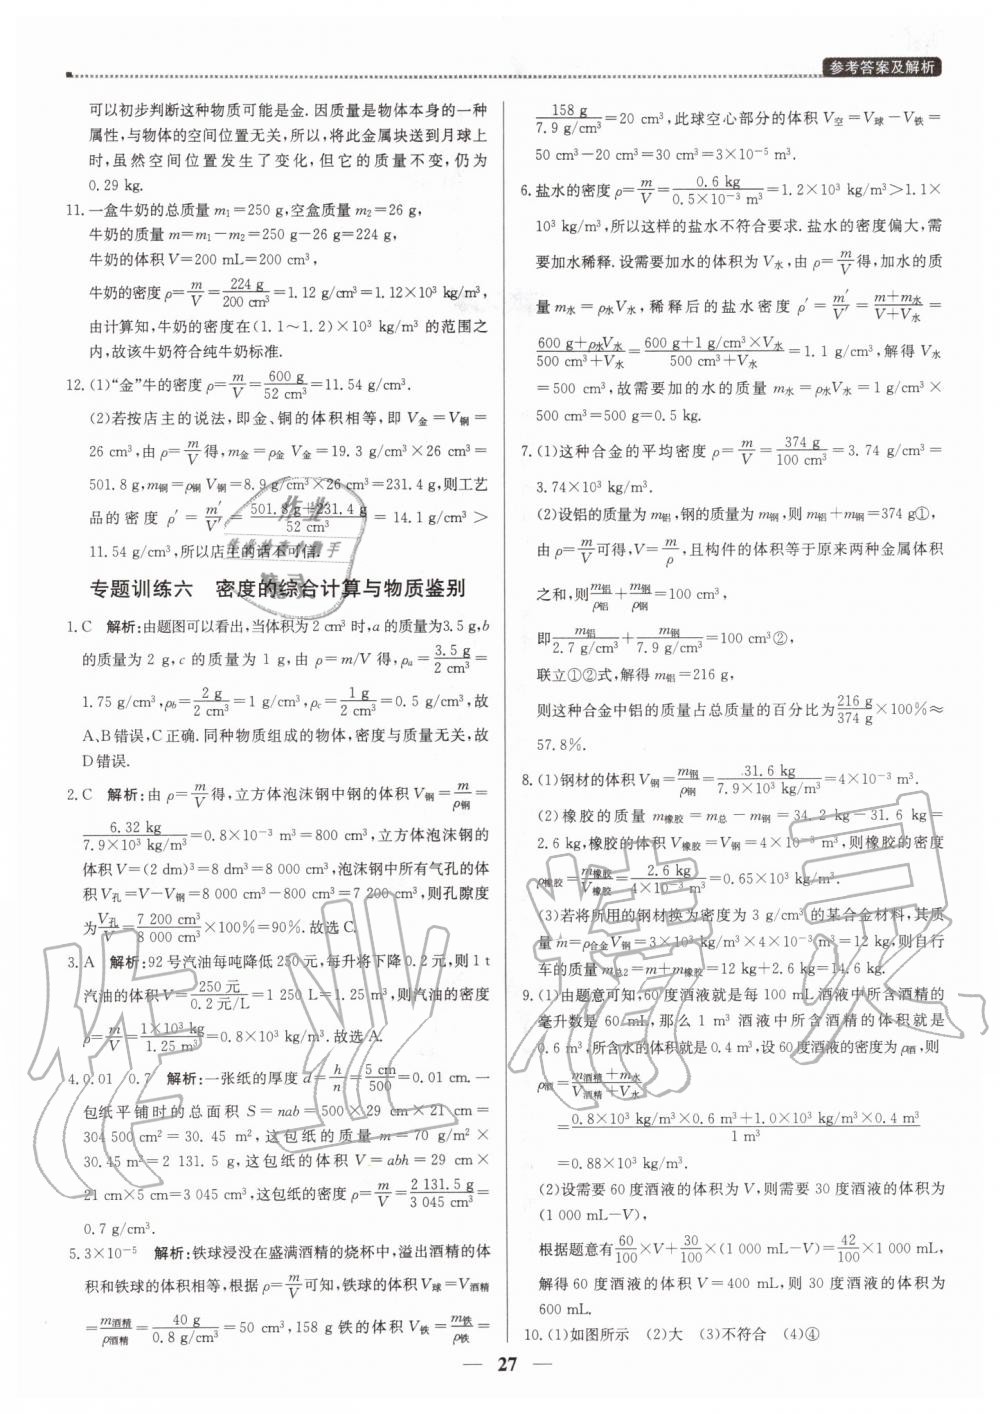 参考答案及解析
可以初步判断这种物质可能是金. 因质量是物体本身的一种
属性,与物体的空间位置无关,所以,将此金属块送到月球上
时,虽然空间位置发生了变化,但它的质量不变,仍为
0.29 kg.
11. 一盒牛奶的总质量 m₁=250 g,空盒质量 m₂=26 g,
牛奶的质量 m=m₁−m₂=250 g−26 g=224 g,
牛奶的体积 V=200 mL=200 cm³,
牛奶的密度 ρ=m/V=224 g/200 cm³=1.12 g/cm³=1.12×10³ kg/m³,
由计算知,牛奶的密度在(1.1~1.2)×10³ kg/m³ 的范围之
内,故该牛奶符合纯牛奶标准.
12. (1)“金”牛的密度 ρ=m/V=600 g/52 cm³=11.54 g/cm³.
(2)若按店主的说法,即金、铜的体积相等,即 V金=V铜=
26 cm³,由 ρ=m/V得,m金=ρ金 V金=19.3 g/cm³×26 cm³=
501.8 g,m铜=ρ铜 V铜=8.9 g/cm³×26 cm³=231.4 g,则工艺
品的密度 ρ′=m′/V′=501.8 g+231.4 g/52 cm³=14.1 g/cm³>
11.54 g/cm³,所以店主的话不可信.
专题训练六 密度的综合计算与物质鉴别
1. C 解析:由题图可以看出,当体积为 2 cm³ 时,a 的质量为3.5 g,b
的质量为 2 g,c 的质量为 1 g,由 ρ=m/V 得,ρa=3.5 g/2 cm³=
1.75 g/cm³,ρb=2 g/2 cm³=1 g/cm³,ρc=1 g/2 cm³=0.5 g/cm³,故
A、B错误,C正确. 同种物质组成的物体,密度与质量无关,故
D错误.
2. C 解析:由 ρ=m/V得,立方体泡沫钢中钢的体积 V钢=m/ρ钢=
6.32 kg/7.9×10³ kg/m³=0.8×10⁻³ m³=800 cm³,立方体泡沫钢的
体积 V=(2 dm)³=8 dm³=8 000 cm³,泡沫钢中所有气孔的体
积 V孔=V−V钢=8 000 cm³−800 cm³=7 200 cm³,则孔隙度
为V孔/V=7 200 cm³/8 000 cm³×100%=90%. 故选 C.
3. A 解析:92 号汽油每吨降低 250 元,每升将下降 0.2 元,则 1 t
汽油的体积 V=250 元/0.2 元/L=1 250 L=1.25 m³,则汽油的密度
ρ=m/V=1×10³ kg/1.25 m³=0.8×10³ kg/m³. 故选 A.
4. 0.01 0.7 解析:一张纸的厚度 d=h/n=5 cm/500=0.01 cm. 一
包纸平铺时的总面积 S=nab=500×29 cm×21 cm=
304 500 cm²=30.45 m²,这包纸的质量 m=70 g/m²×
30.45 m²=2 131.5 g,这包纸的体积 V=abh=29 cm×
21 cm×5 cm=3 045 cm³,这包纸的密度 ρ=m/V=2 131.5 g/3 045 cm³=
0.7 g/cm³.
5. 3×10⁻⁵ 解析:铁球浸没在盛满酒精的烧杯中,溢出酒精的体
积和铁球的体积相等,根据 ρ=m/V可知,铁球的体积 V球=V酒精
=m酒精/ρ酒精=40 g/0.8 g/cm³=50 cm³,158 g 铁的体积 V铁=m铁/ρ铁=
158 g/7.9 g/cm³=20 cm³,此球空心部分的体积 V空=V球−V铁=
50 cm³−20 cm³=30 cm³=3×10⁻⁵ m³.
6. 盐水的密度 ρ=m/V=0.6 kg/0.5×10⁻³ m³=1.2×10³ kg/m³>1.1×
10³ kg/m³,所以这样的盐水不符合要求. 盐水的密度偏大,需
要加水稀释. 设需要加水的体积为 V水,由 ρ=m/V得,加水的质
量 m水=ρ水V水,稀释后的盐水密度 ρ′=m′/V′=m+m水/V+V水=
600 g+ρ水V水/500 cm³+V水=600 g+1 g/cm³×V水/500 cm³+V水=1.1 g/cm³,解得 V水
=500 cm³,故需要加的水的质量 m水=ρ水V水=1 g/cm³×
500 cm³=500 g=0.5 kg.
7. (1)这种合金的平均密度 ρ=m/V=374 g/100 cm³=3.74 g/cm³=
3.74×10³ kg/m³.
(2)设铝的质量为 m铝,钢的质量为 m钢,则 m铝+m钢=374 g①,
由 ρ=m/V可得,V=m/ρ,且构件的体积等于原来两种金属体积
之和,则m铝/ρ铝+m钢/ρ钢=100 cm³,
即m铝/2.7 g/cm³+m钢/7.9 g/cm³=100 cm³②,
联立①②式,解得 m铝=216 g,
则这种合金中铝的质量占总质量的百分比为216 g/374 g×100%≈
57.8%.
8. (1)钢材的体积 V钢=m钢/ρ钢=31.6 kg/7.9×10³ kg/m³=4×10⁻³ m³.
(2)橡胶的质量 m橡胶=m总−m钢=34.2 kg−31.6 kg=
2.6 kg,橡胶的体积 V橡胶=V钢=4×10⁻³ m³,则橡胶的密度
ρ橡胶=m橡胶/V橡胶=2.6 kg/4×10⁻³ m³=0.65×10³ kg/m³.
(3)若将所用的钢材换为密度为 3 g/cm³ 的某合金材料,其质
量 m=ρ合金V钢=3×10³ kg/m³×4×10⁻³ m³=12 kg,则自行
车的质量 m总2=m+m橡胶=12 kg+2.6 kg=14.6 kg.
9. (1)由题意可知,60 度酒液就是每 100 mL 酒液中所含酒精的
毫升数是 60 mL,那么 1 m³ 酒液中所含酒精的体积就是
0.6 m³,所含水的体积就是 0.4 m³,设 60 度酒液的密度为 ρ酒,则
ρ酒=m酒精+m水/V酒精+V水
=0.8×10³ kg/m³×0.6 m³+1.0×10³ kg/m³×0.4 m³/1 m³
=0.88×10³ kg/m³.
(2)设需要 60 度酒液的体积为 V,则需要 30 度酒液的体积为
(1 000 mL−V),
根据题意有60/100×V+30/100×(1 000 mL−V)=42/100×1 000 mL,
解得 60 度酒液的体积 V=400 mL,则 30 度酒液的体积为
600 mL.
10. (1)如图所示 (2)大 (3)不符合 (4)④
27
作业精灵